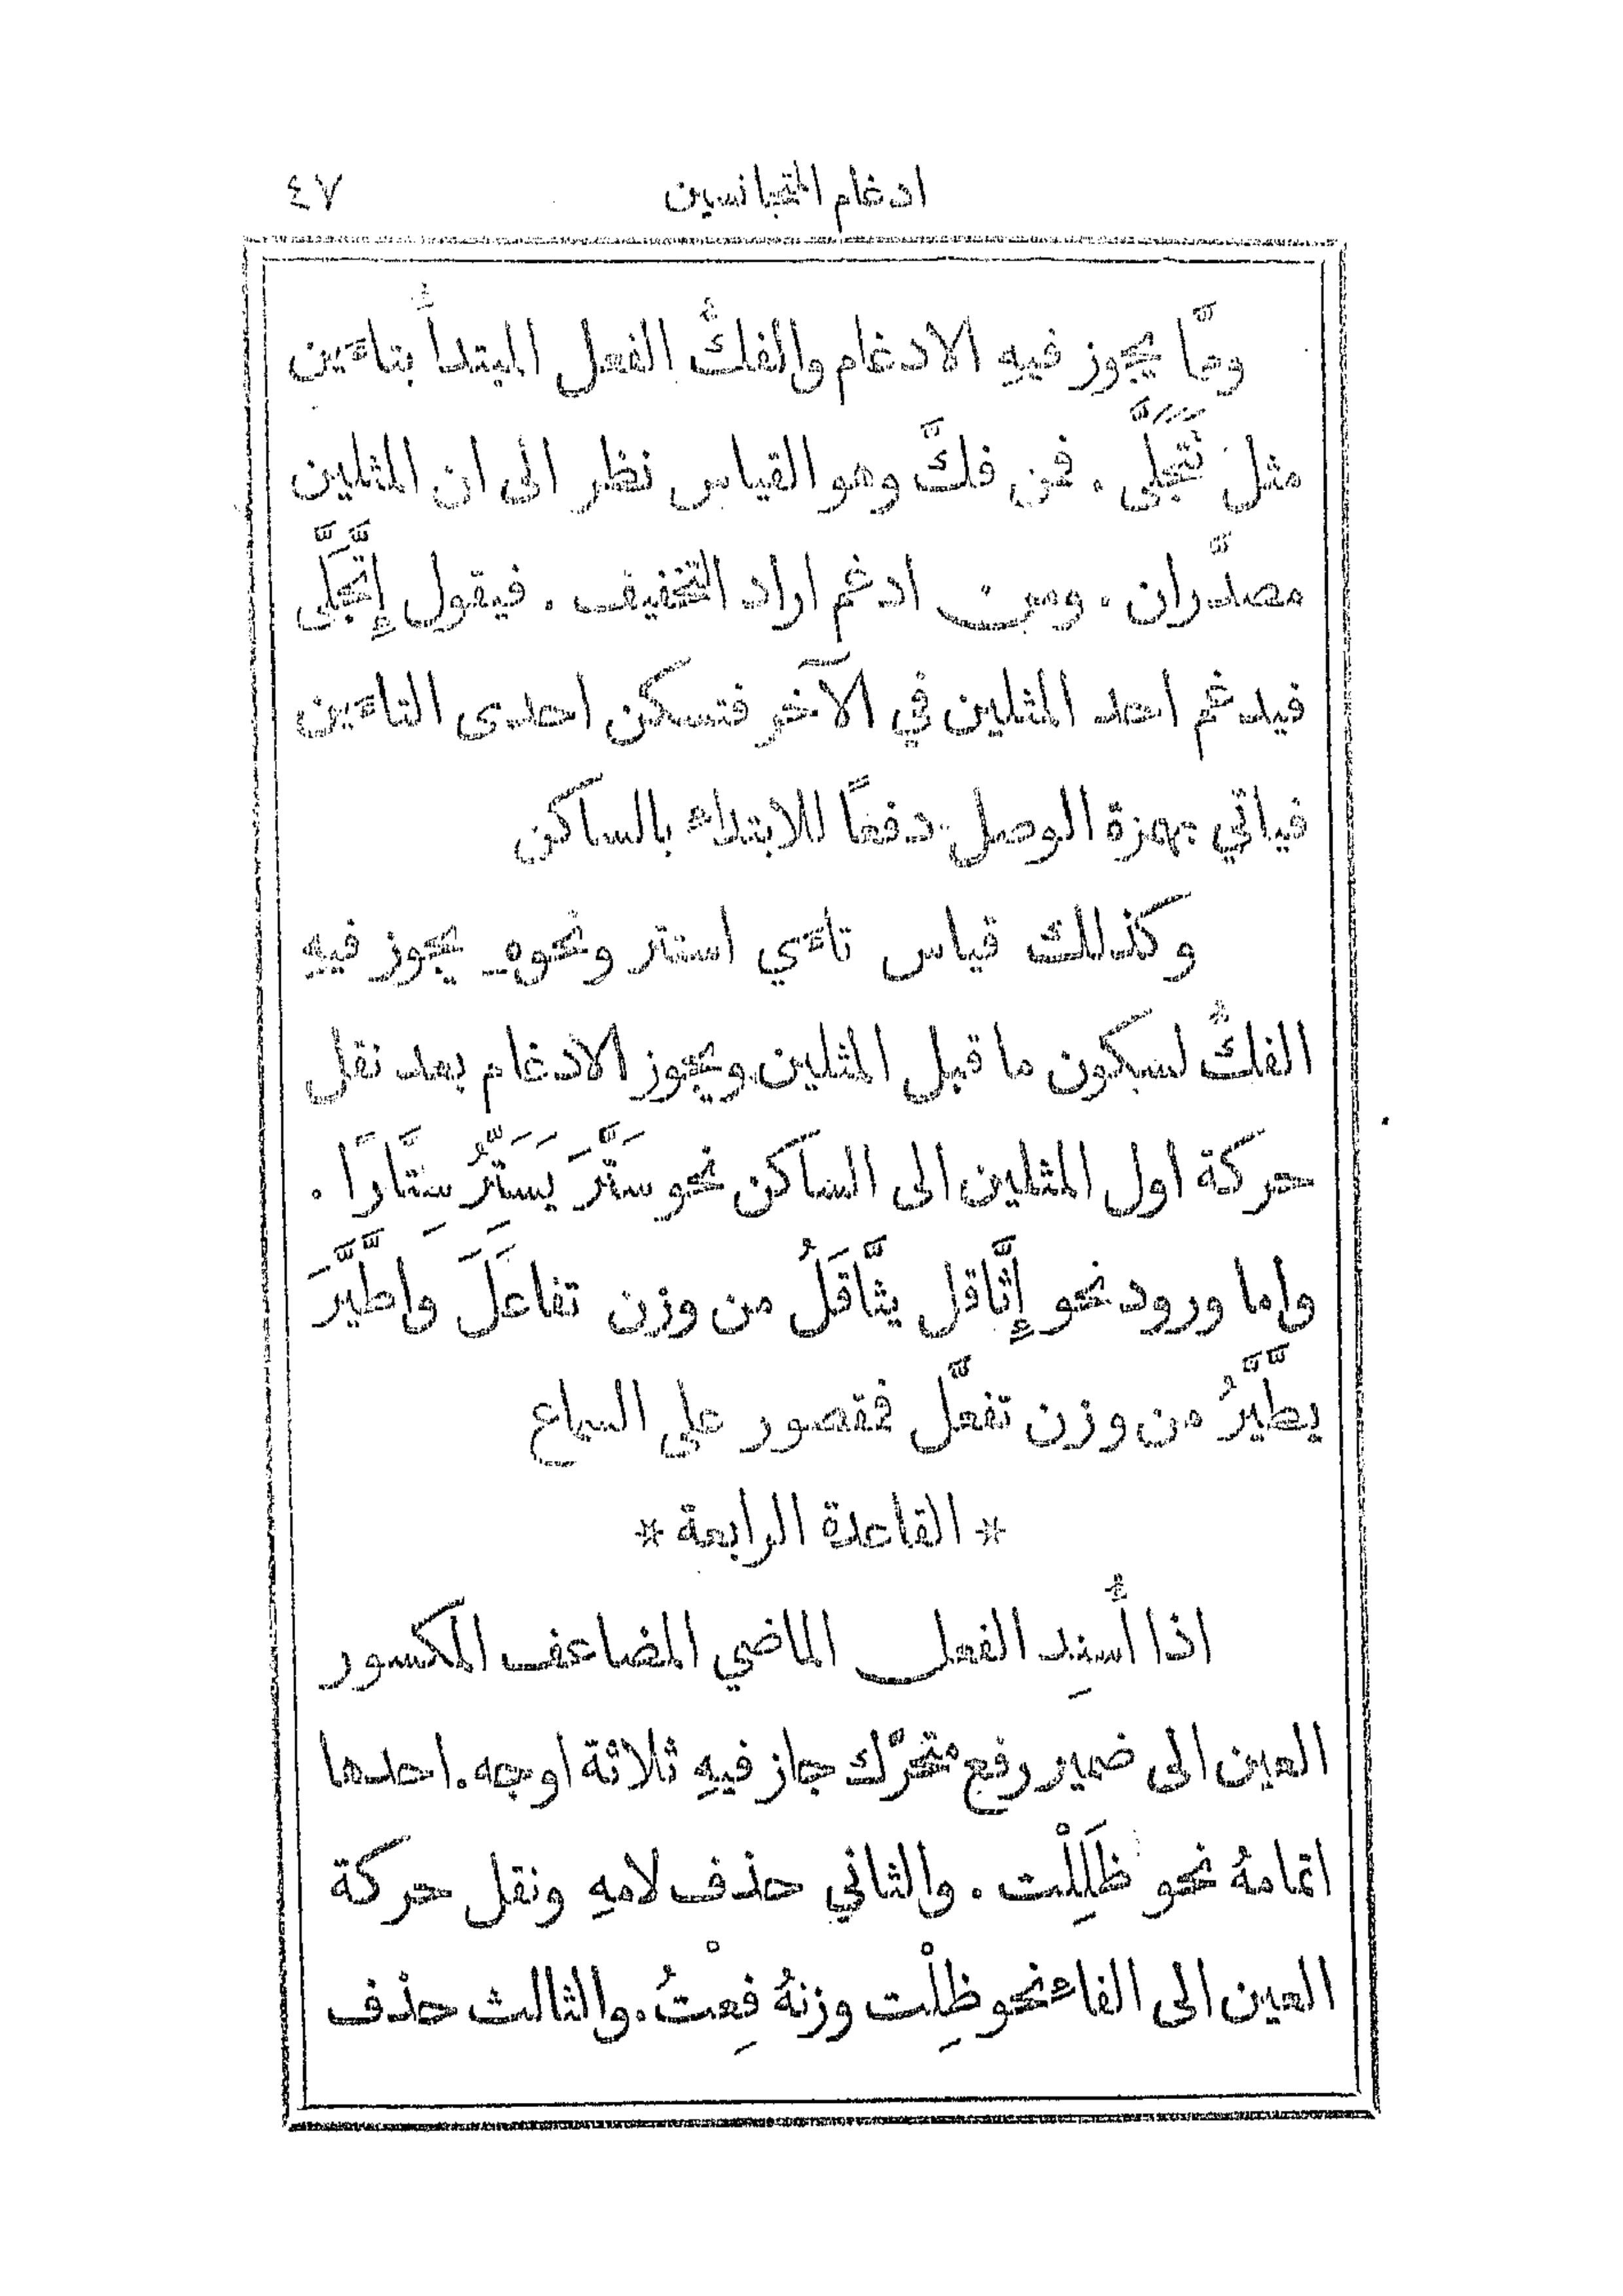 ادغام المتجانسين ٤٧
ومَّا يجوز فيهِ الادغام والفكُّ الفعل المبتدأُ بتاءَين
مثل تَتَجَلَّى . فمن فكَّ وهو القياس نظر الى ان المثلين
مصدَّران . ومن ادغم اراد التخفيف . فيقول إِتَّجَلَّى
فيدغم احد المثلين في الآخر فتسكن احدى التاءَين
فياتي بهمزة الوصل دفعًا للابتداء بالساكن
وكذلك قياس تاءَي استتر ونحوهِ يجوز فيهِ
الفكُّ لسكون ما قبل المثلين ويجوز الادغام بعد نقل
حركة اول المثلين الى الساكن نحو سَتَّرَ يَسَتِّرُ سِتَّارًا .
واما ورود نحو إِثَّاقل يثَّاقَلُ من وزن تفاعَلَ واطَّيَّرَ
يطَّيَّرُ من وزن تفعَّل فمقصور على السماع
* القاعدة الرابعة *
اذا أُسنِد الفعل الماضي المضاعف المكسور
العين الى ضمير رفع متحرّك جاز فيهِ ثلاثة اوجه . احدها
اتمامهُ نحو ظَلِلْت . والثاني حذف لامهِ ونقل حركة
العين الى الفاء نحو ظِلْت وزنهُ فِعْتُ . والثالث حذف